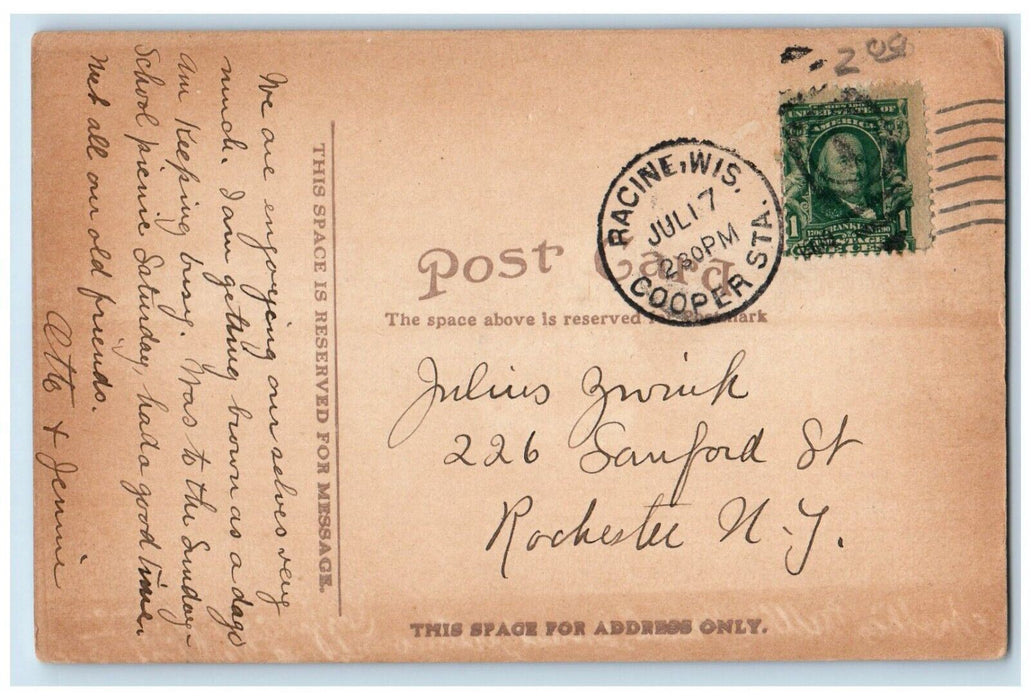 We are engoyeing our selves very
much. I am getting brown as a dago
am Keeping busy. Was to the Sunday-
School picnic Saturday, had a good time.
Met all our old friends.
Otto + Jennie
THIS SPACE IS RESERVED FOR MESSAGE.
200
UNITED STATES OF
AMERICA
1 FRANKLIN 1
POSTAGE
RACINE, WIS.
JUL 17
230 PM
COOPER STA.
Post Card
The space above is reserved for postmark
Julius Zwink
226 Sanford St
Rochester N.Y.
THIS SPACE FOR ADDRESS ONLY.